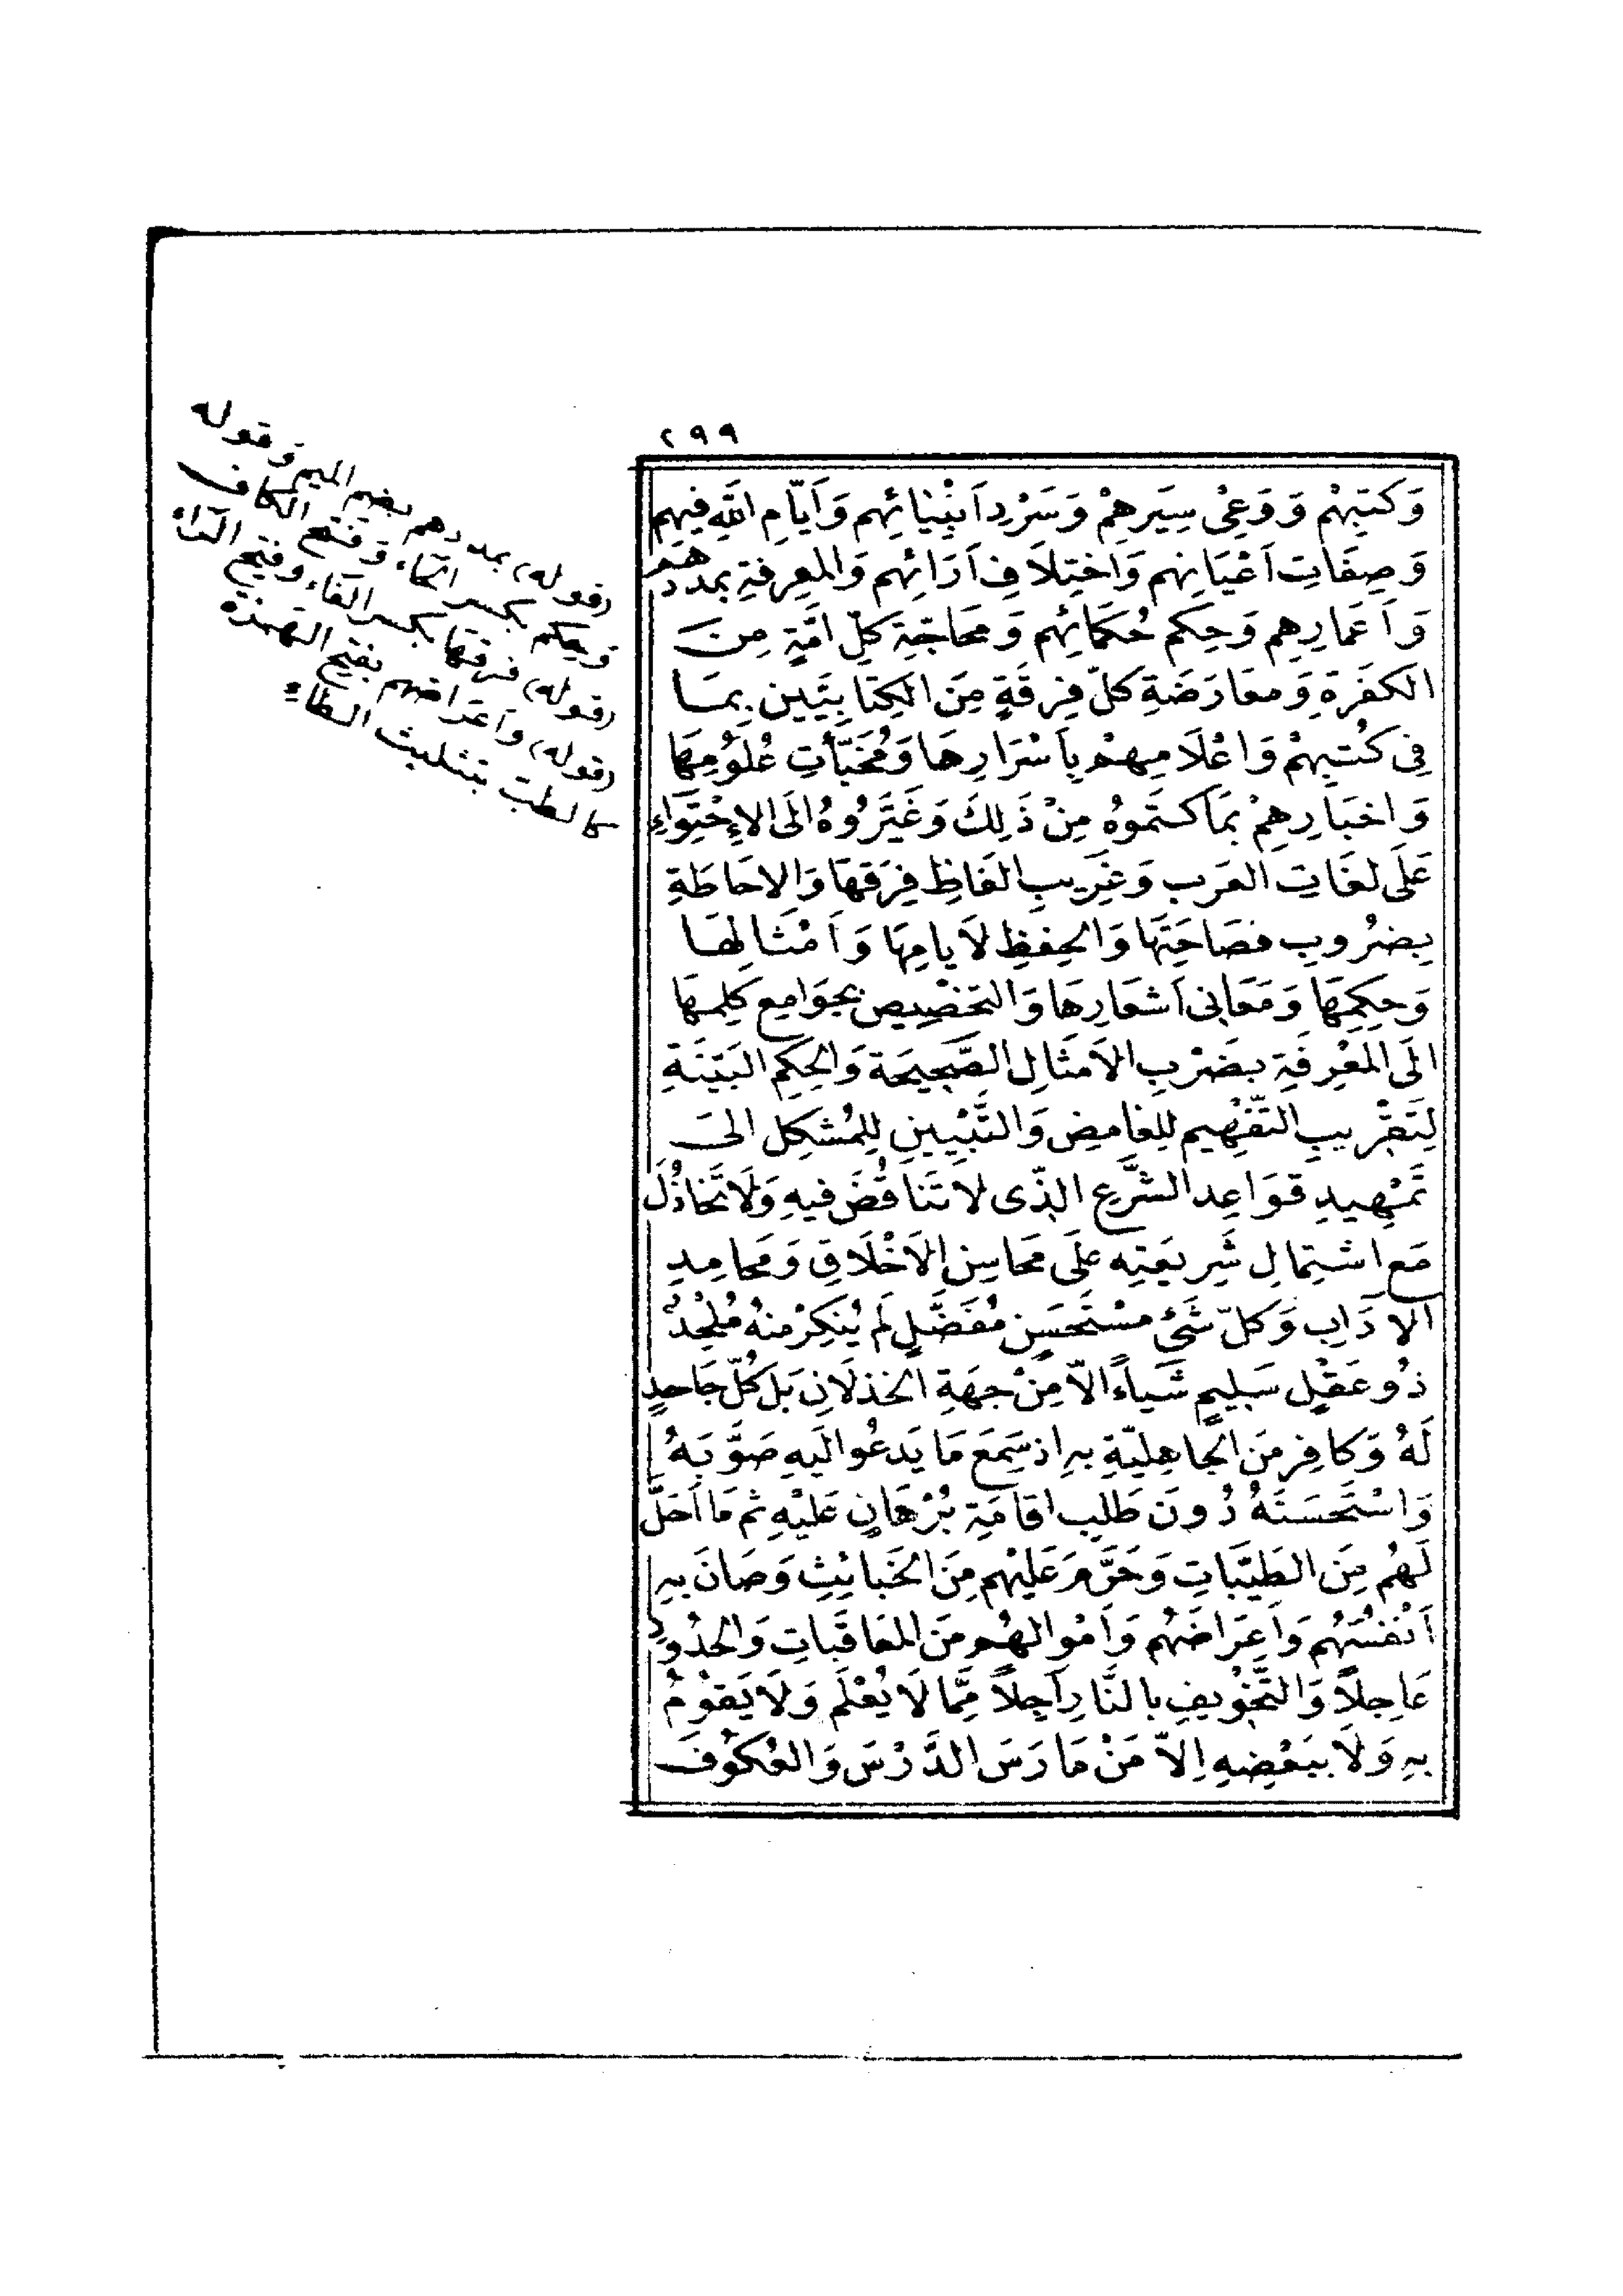 ٢٩٩
وَكُتُبِهِمْ وَوَعْىِ سِيَرِهِمْ وَسَرْدِ اَنْبِيَائِهِم وَاَيَّامِ اللهِ فيهِم
وَصِفَاتِ اَعْيَانِهِم وَاخْتِلَافِ اٰرَائِهُم وَالمعرِفةِ بمددهم
وَاَعمَارِهِم وَحِكَم حُكَمَائِهُم وَمحَاجّةِ كلّ امّةٍ مِنَ
الكفَرَةِ وَمعَارَضَةِ كلّ فِرقَةٍ مِنَ الكِتَابِيّين بِمَا
فِى كُتُبِهِمْ وَاعْلَامِهِمْ بِاَسْرَارِهَا وَمُخَبَّأتِ عُلُومِهَا
وَاخبَارِهِمْ بمَا كَتَموهُ مِنْ ذَلِكَ وَغَيَّرُوهُ الَى الإحْتِوَاءِ
عَلَى لغَاتِ العَرَب وَغَرِيبِ الفَاظِ فِرَقِهَا وَالاحَاطَةِ
بِضرُوبِ فصَاحَتِهَا وَالحِفظِ لاَيامِهَا وَاَمْثَالِهَا
وَحِكَمِهَا وَمَعَانِى اَشعَارِهَا وَالتخصْيِص بجوَامِع كَلِمِهَا
الَى المَعْرِفَةِ بضَرْبِ الاَمثَالِ الصَّحِيحَة وَالحِكَمِ البَيّنَةِ
لِتَقْرِيبِ التّفْهِيم للغَامِضِ وَالتَّبْيِينِ لِلمُشكِل الىَ
تَمْهِيدِ قوَاعِد الشَّرْعِ الذّى لا تَناقُضَ فيهِ وَلَا تَخاذُلَ
مَع اشتِمالِ شَرِيعَتِه عَلَى مَحَاسِنِ الاَخْلَاقِ وَمَحامِدِ
الادَابِ وَكلّ شَىْءٍ مسْتَحسَنٍ مُفَضَّلٍ لَم يُنكِرْ منهُ مُلْحِدٌ
ذُو عَقْلٍ سَلِيمٍ شَيأً الاّ مِنْ جِهَةِ الخذلَانِ بَل كُلّ جَاحدٍ
لَهُ وَكافِرٍ منَ الجَاهِليّةِ بهِ اذ سَمِعَ مَا يَدعُو اليهِ صَوَّبَهُ
وَاسْتَحسَنَهُ دُونَ طَلَب اقَامَةِ بُرْهَانٍ عَليْهِ ثم مَا اَحَلَّ
لَهُم مِنَ الطَيّبَاتِ وَحَرَّمَ عَليْهِم مِنَ الخَبائِثِ وَصَانَ بِهِ
اَنْفسُهُم وَاَعرَاضَهُم وَاَمْوالهُم منَ المعَاقَبَاتِ وَالحُدُودِ
عَاجِلاً وَالتَّخْوِيفِ بالنَّارِ اٰجلاً مِمَّا لَا يُعْلَم وَلَا يَقوُمُ
بِهِ وَلَا ببَعْضِهِ اِلاّ مَنْ مَارَسَ الدَّرْسَ وَالعُكُوفَ
(قوله) بمددهم بضم الميم وقوله
وحِكَم بكسر الحاء وفتح الكاف
(قوله) فرقها بكسر الفاء وفتح الرّاء
(قوله) وَاعراضهم بفتح الهمزة
كالطب بتثليث الطاء